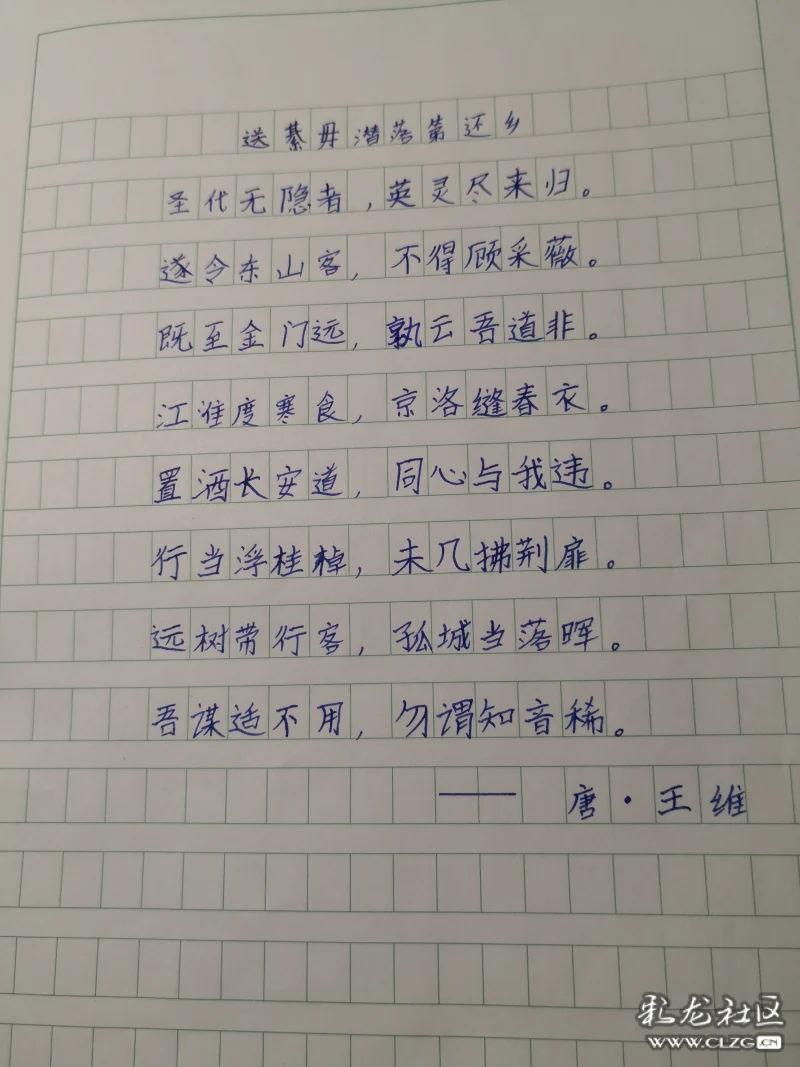 送綦毋潜落第还乡
圣代无隐者，英灵尽来归。
遂令东山客，不得顾采薇。
既至金门远，孰云吾道非。
江淮度寒食，京洛缝春衣。
置酒长安道，同心与我违。
行当浮桂棹，未几拂荆扉。
远树带行客，孤城当落晖。
吾谋适不用，勿谓知音稀。
—— 唐·王维
彩龙社区
WWW.CLZG.CN